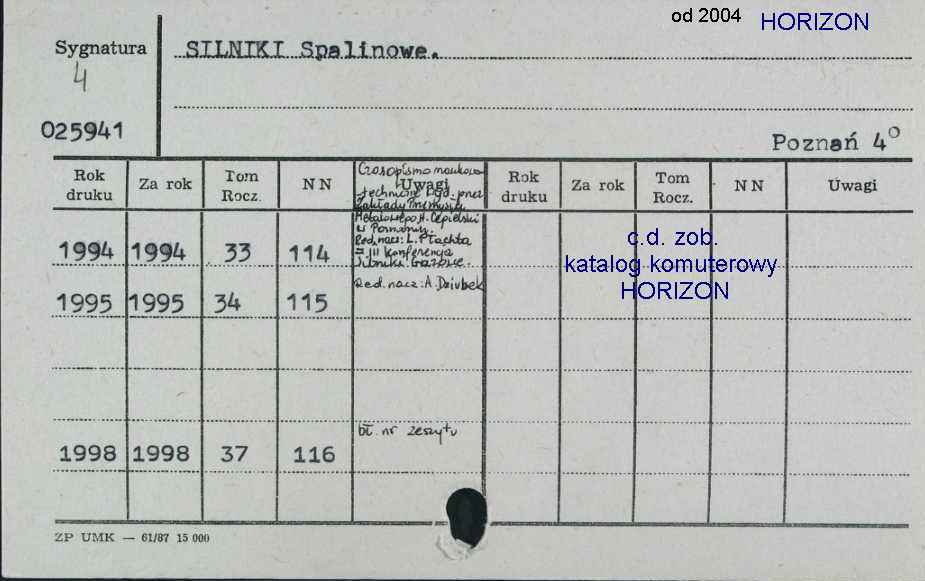 od 2004 HORIZON
Sygnatura
4
025941
SILNIKI Spalinowe.
Poznań 4°
Rok druku Za rok Tom Rocz. NN Uwagi Rok druku Za rok Tom Rocz. NN Uwagi
Czasopismo naukowo
techniczne
Zakłady Przemysłu
Metalowego H. Cegielski
w Poznaniu.
Red. nacz.: L. Płachta
= III Konferencja
Silniki Gazowe.
1994 1994 33 114
Red. nacz: A. Dziubek
1995 1995 34 115
bł. nr zeszytu
1998 1998 37 116
c.d. zob.
katalog komuterowy
HORIZON
ZP UMK — 61/87 15 000